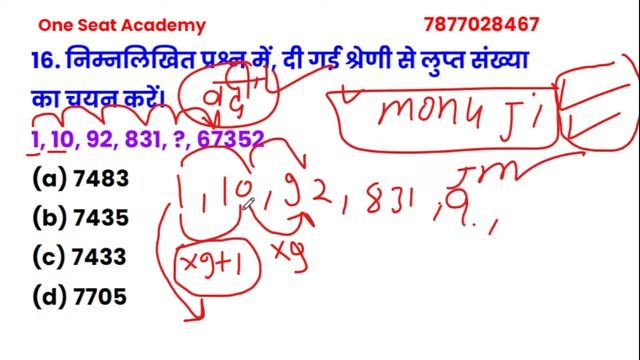 One Seat Academy 7877028467
16. निम्नलिखित प्रश्न में, दी गई श्रेणी से लुप्त संख्या
का चयन करें।
monu Ji
1, 10, 92, 831, ?, 67352
(a) 7483
1, 10, 92, 831, 9.,
(b) 7435
(c) 7433
x9+1 x9
(d) 7705